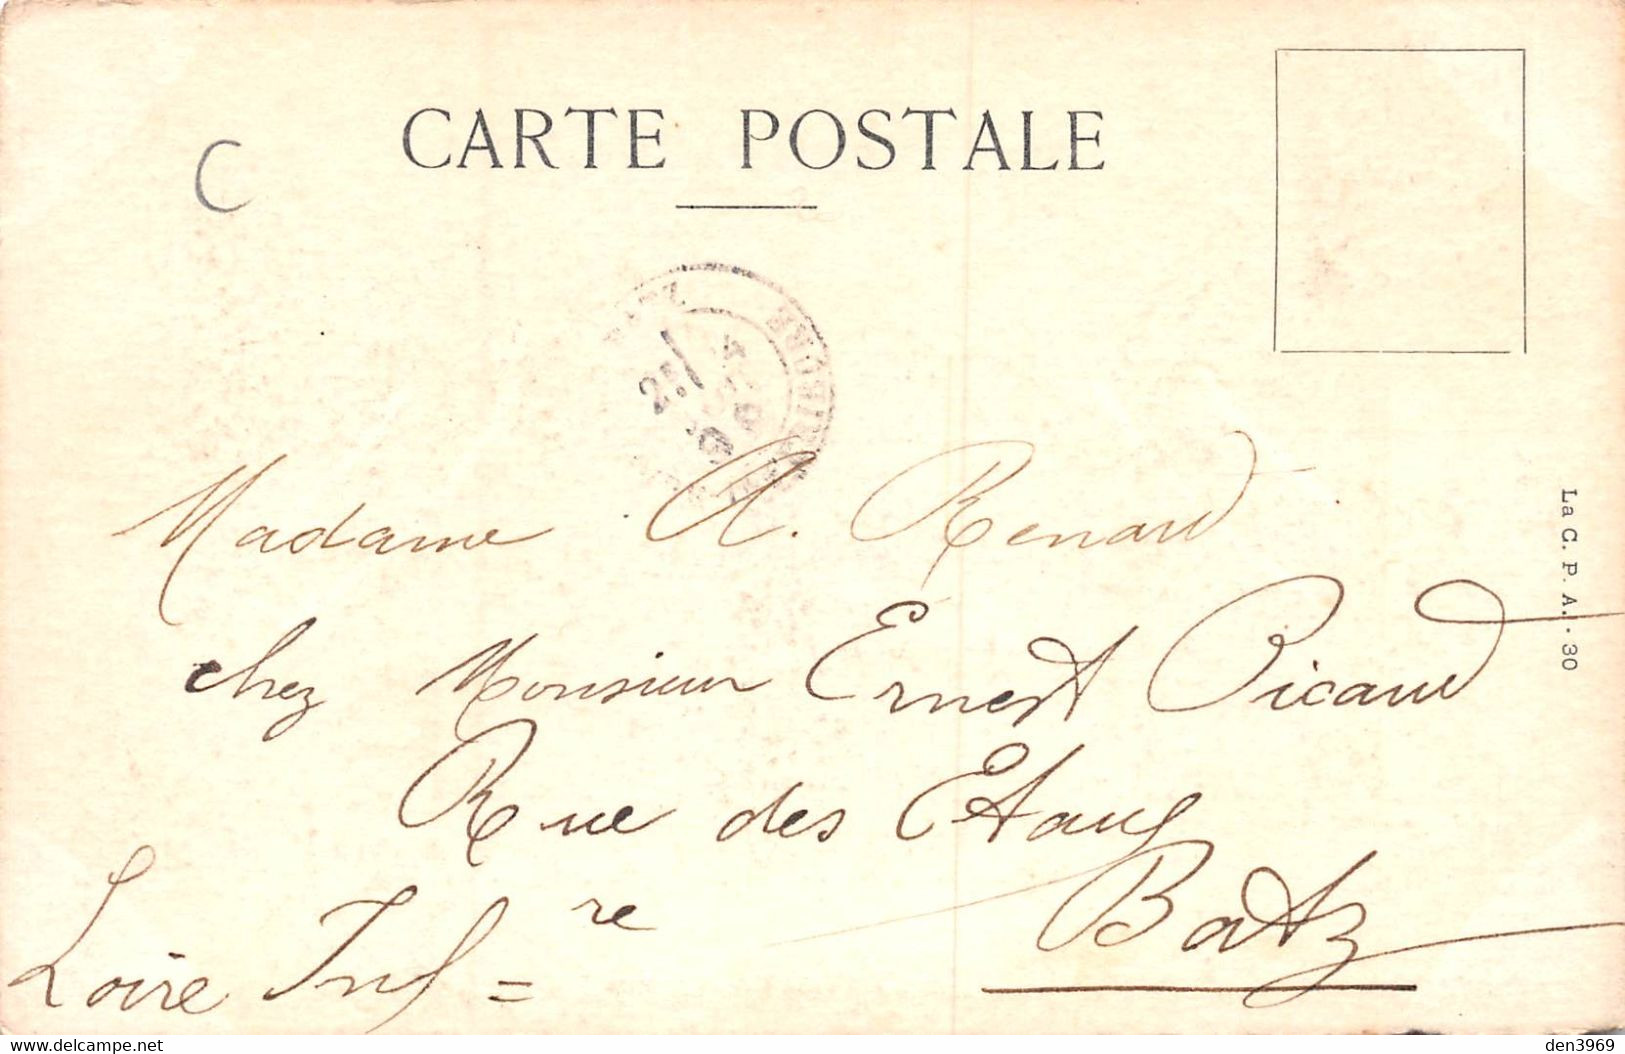 C
CARTE POSTALE
Madame A. Renard
chez Monsieur Ernest Picaud
Rue des Etang
Batz
Loire Inf=re
La C. P. A. - 30
delcampe.net
den3969